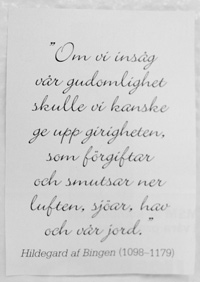 "Om vi insåg
vår gudomlighet
skulle vi kanske
ge upp girigheten,
som förgiftar
och smutsar ner
luften, sjöar, hav
och vår jord."
Hildegard af Bingen (1098–1179)